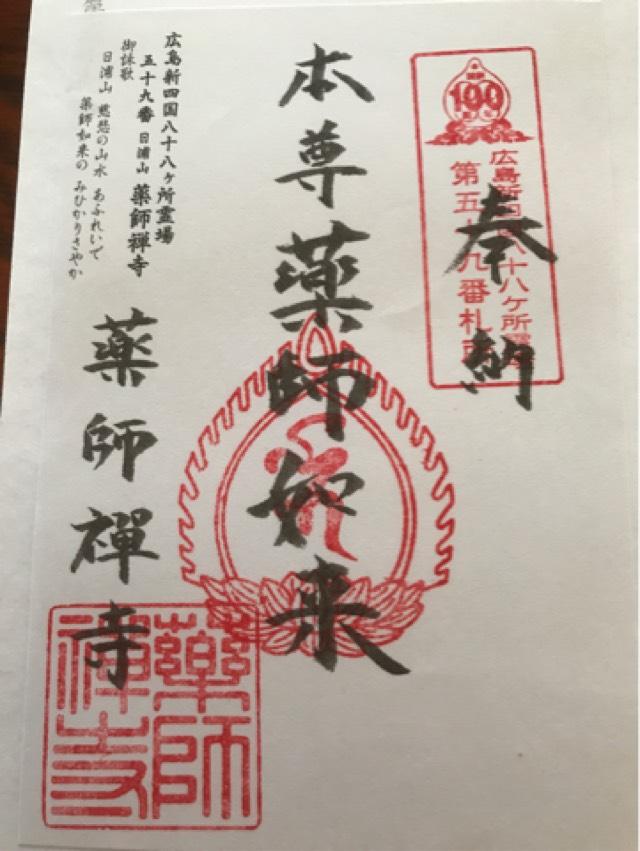 奉納
100
広島新四国八十八ヶ所霊場
第五十九番札所
本尊薬師如来
広島新四国八十八ヶ所霊場
五十九番 日浦山 薬師禅寺
御詠歌
日浦山 慈悲の山水 あふれいで
薬師如来の みひかりさやか
薬師禅寺
薬師
禅寺